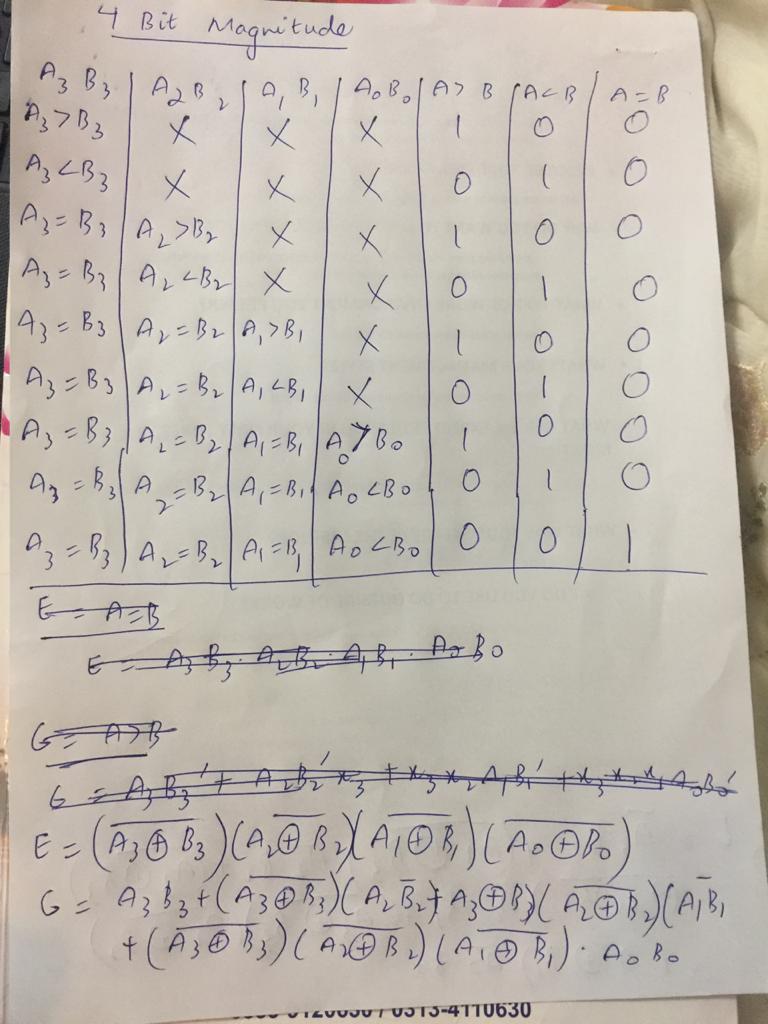 4 Bit Magnitude
A₃ B₃ | A₂ B₂ | A₁ B₁ | A₀ B₀ | A > B | A < B | A = B
A₃ > B₃ | X | X | X | 1 | 0 | 0
A₃ < B₃ | X | X | X | 0 | 1 | 0
A₃ = B₃ | A₂ > B₂ | X | X | 1 | 0 | 0
A₃ = B₃ | A₂ < B₂ | X | X | 0 | 1 | 0
A₃ = B₃ | A₂ = B₂ | A₁ > B₁ | X | 1 | 0 | 0
A₃ = B₃ | A₂ = B₂ | A₁ < B₁ | X | 0 | 1 | 0
A₃ = B₃ | A₂ = B₂ | A₁ = B₁ | A₀ > B₀ | 1 | 0 | 0
A₃ = B₃ | A₂ = B₂ | A₁ = B₁ | A₀ < B₀ | 0 | 1 | 0
A₃ = B₃ | A₂ = B₂ | A₁ = B₁ | A₀ < B₀ | 0 | 0 | 1
E = A = B
E = A₃ B₃ · A₂ B₂ · A₁ B₁ · A₀ B₀
G = A > B
G = A₃ B₃' + A₂ B₂' x₃ + x₃ x₂ A₁ B₁' + x₃ x₂ x₁ A₀ B₀'
E = (A̅₃̅ ̅⊕̅ ̅B̅₃̅) (A̅₂̅ ̅⊕̅ ̅B̅₂̅) (A̅₁̅ ̅⊕̅ ̅B̅₁̅) (A̅₀̅ ̅⊕̅ ̅B̅₀̅)
G = A₃ B₃ + (A̅₃̅ ̅⊕̅ ̅B̅₃̅) (A₂ B̅₂ + A̅₃̅ ̅⊕̅ ̅B̅₃̅) (A̅₂̅ ̅⊕̅ ̅B̅₂̅) (A₁ B̅₁
+ (A̅₃̅ ̅⊕̅ ̅B̅₃̅) (A̅₂̅ ̅⊕̅ ̅B̅₂̅) (A̅₁̅ ̅⊕̅ ̅B̅₁̅) · A₀ B₀
0313-4110630